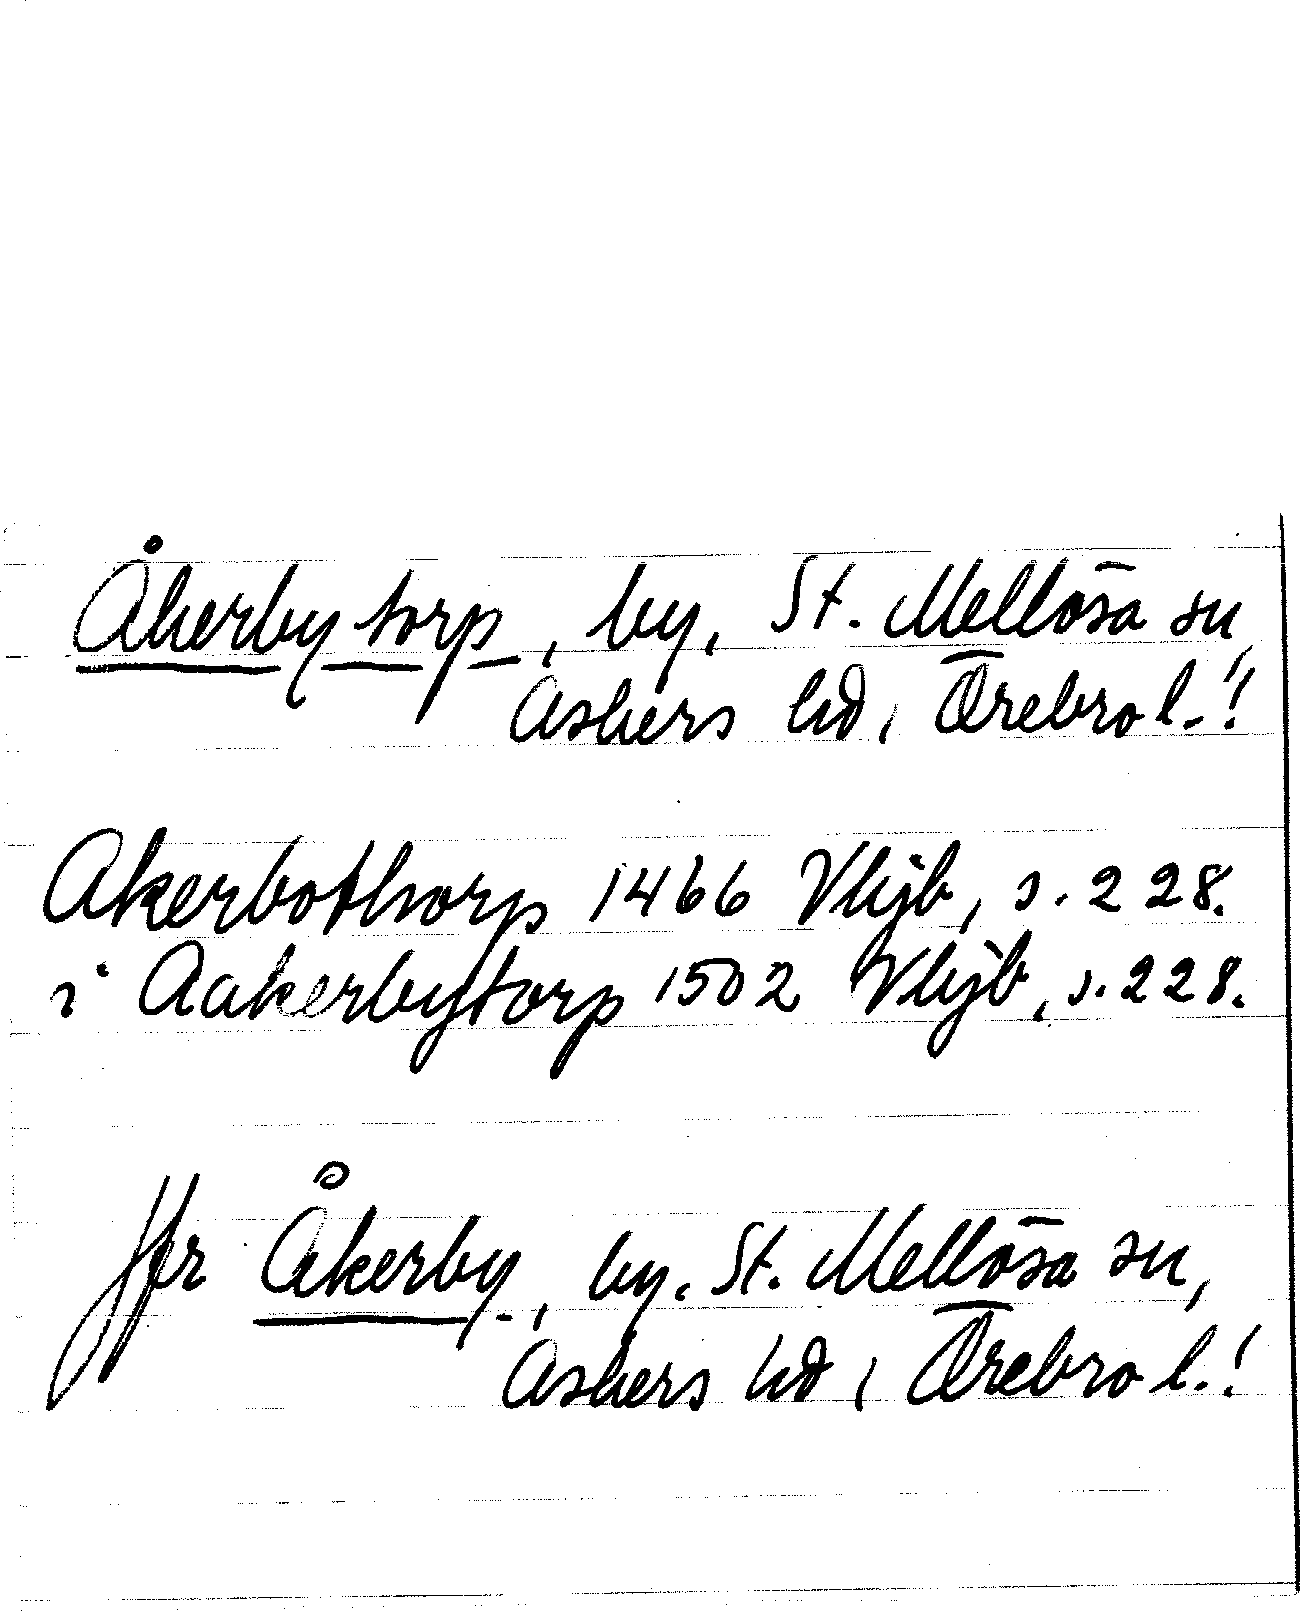 Åkerbytorp, by, St. Mellösa sn,
Askers hd, Örebro l.!
Akerbothorp 1466 Vkjb, s. 228.
i Aakerbytorp 1502 Vkjb, s. 228.
Jfr Åkerby, by. St. Mellösa sn,
Askers hd, Örebro l.!